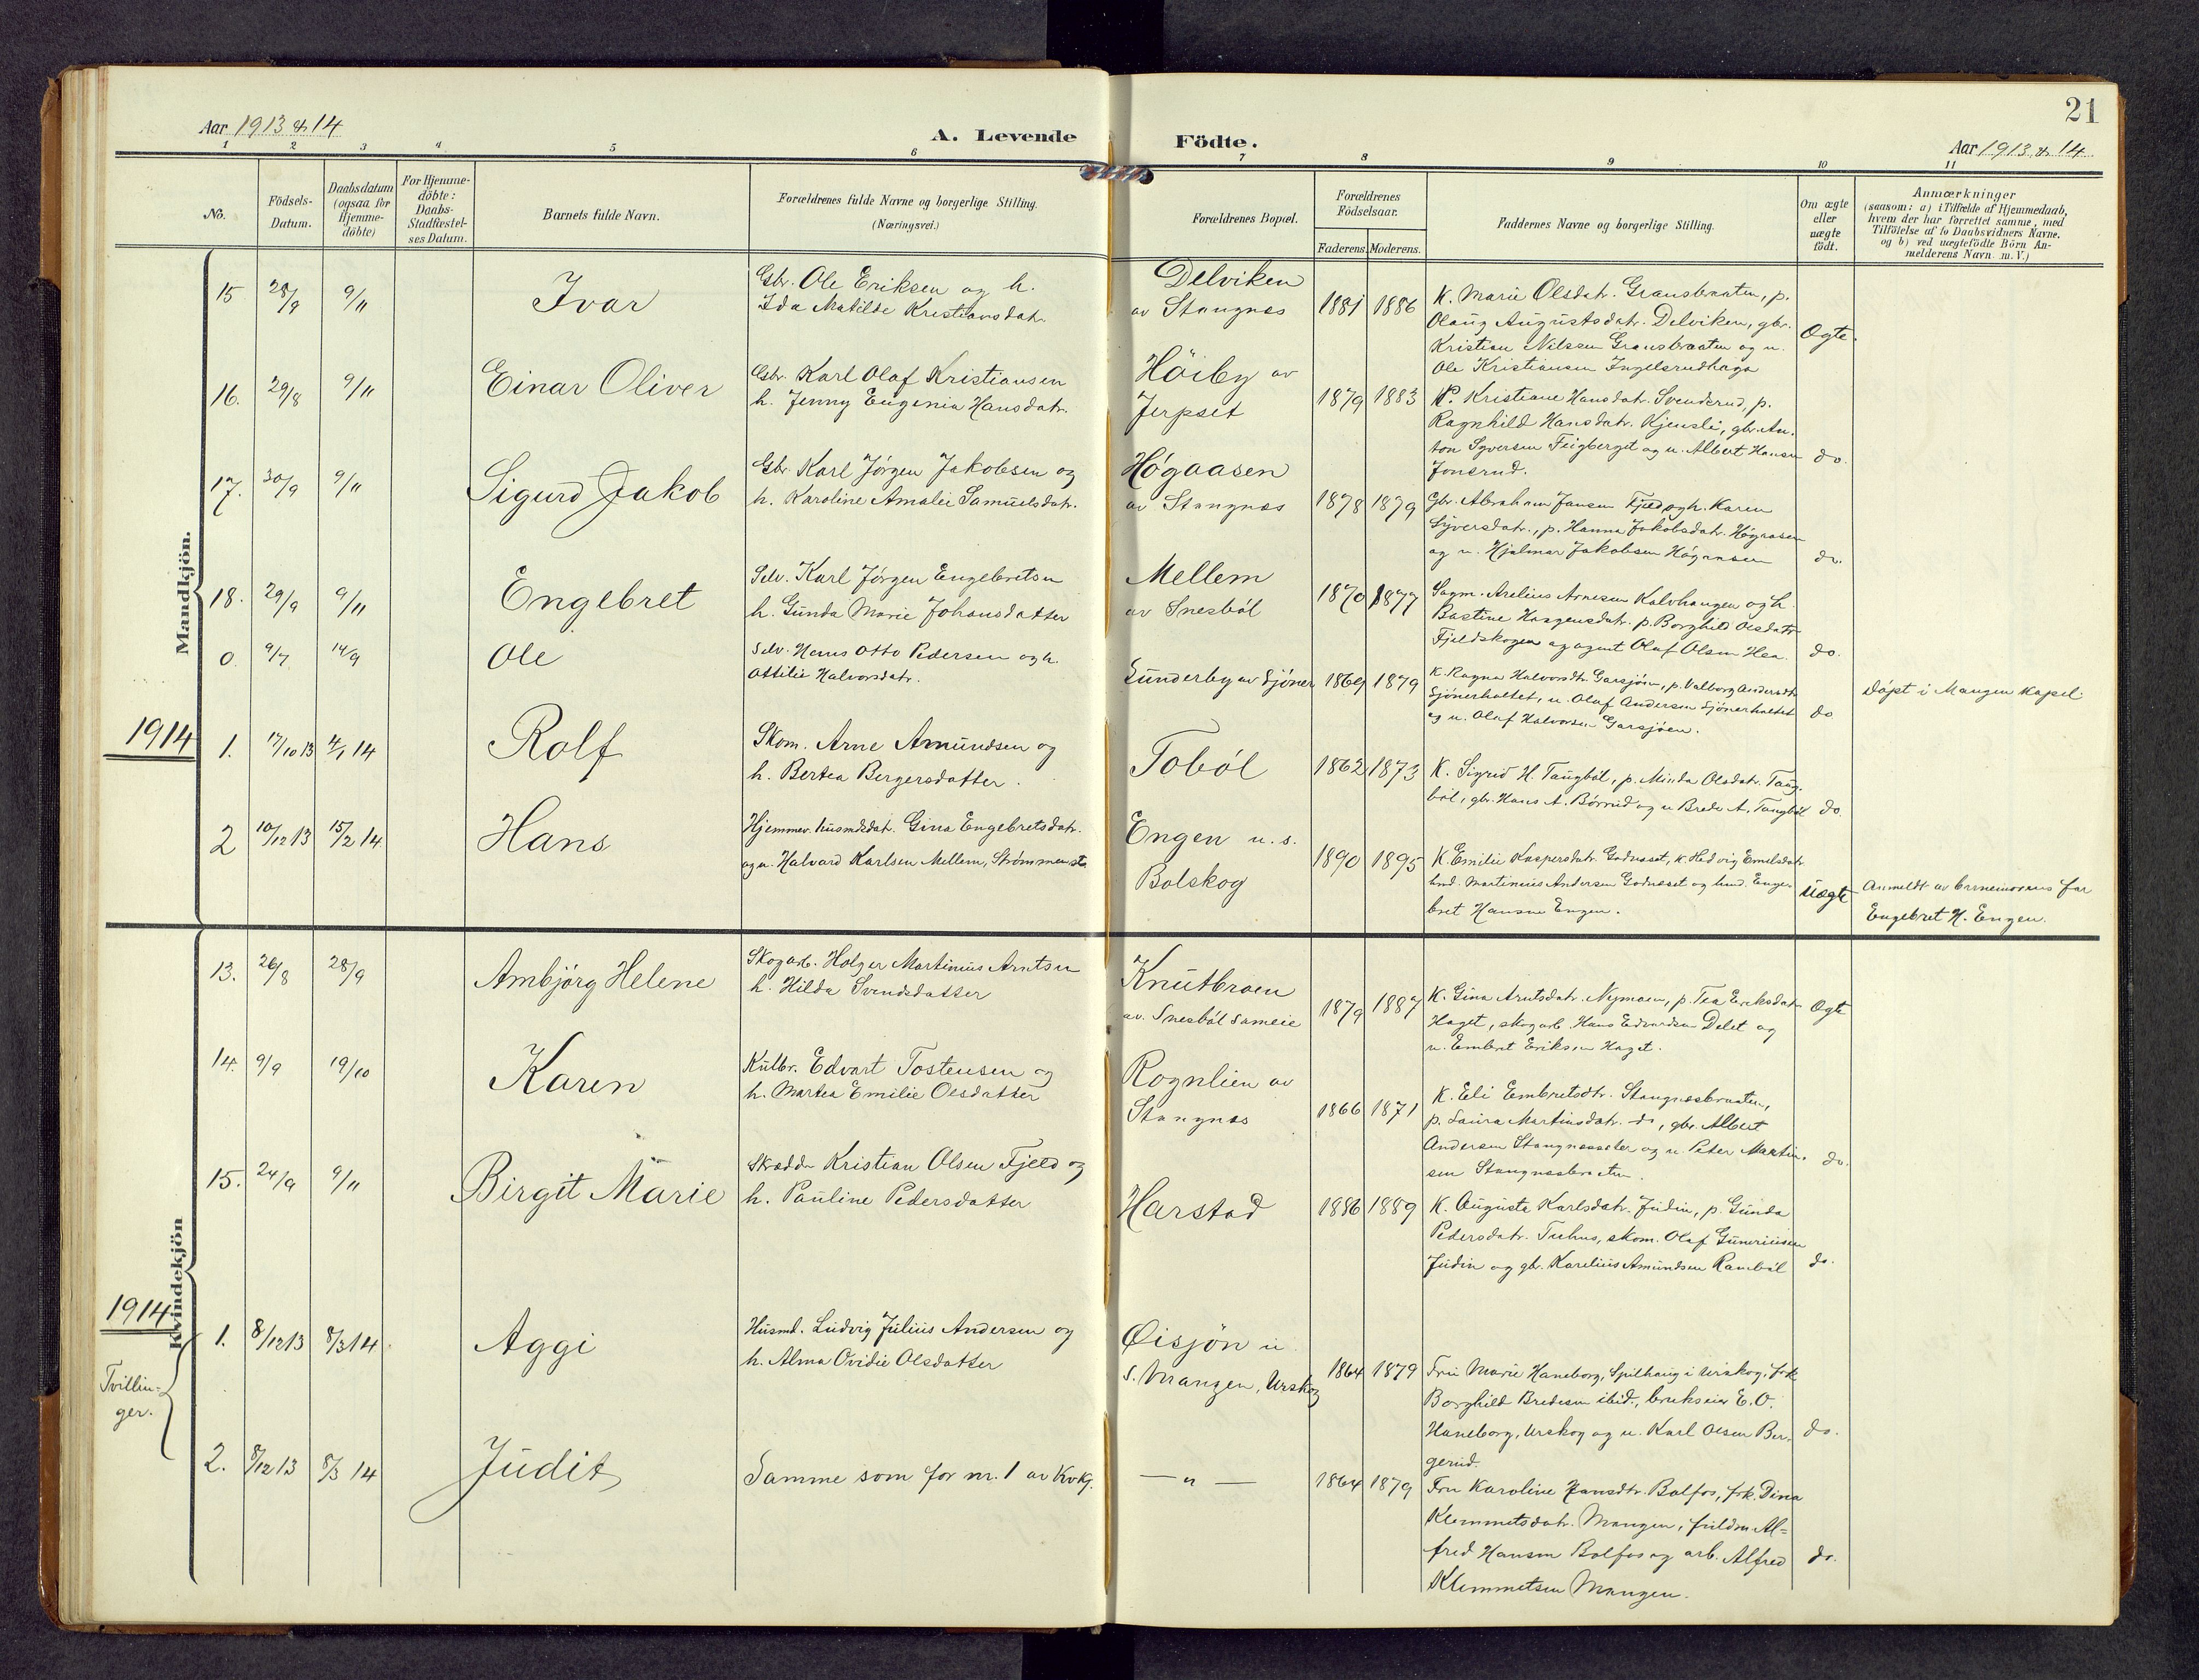 21
Aar 1913 & 14
A. Levende Födte.
Aar 1913 & 14
1 2 3 4 5 6 7 8 9 10 11
No.
Födsels-
Datum.
Daabsdatum
(ogsaa for
Hjemme-
döbte)
For Hjemme-
döbte:
Daabs-
Stadfæstel-
ses Datum.
Barnets fulde Navn.
Forældrenes fulde Navne og borgerlige Stilling.
(Næringsvei.)
Forældrenes Bopæl.
Forældrenes
Födselsaar.
Faderens. Moderens.
Faddernes Navne og borgerlige Stilling.
Om ægte
eller
uægte
födt.
Anmærkninger
(saasom: a) i Tilfælde af Hjemmedaab,
hvem der har forrettet samme, med
Tilföielse af to Daabsvidners Navne.
og b) ved uægtefödte Börn An-
melderens Navn m. V.)
Mandkjön.
15 28/9 9/11
Ivar
Gbr. Ole Eriksen og h.
Ida Matilde Kristiansdatr.
Delviken
av Stangnes
1881 1886
K. Marie Olsdatr. Gransbraaten, p.
Olaug Augustsdatr. Delviken, gbr.
Kristian Nilsen Gransbraaten og u.
Ole Kristiansen Ingelsrudhaga
Ogte.
16. 29/8 9/11
Einar Oliver
Gbr. Karl Olaf Kristiansen
h. Jenny Eugenia Hansdatr.
Höiby av
Jerpset
1879 1883
K. Kristiane Hansdatr. Svenderud, p.
Ragnhild Hansdatr. Kjensli, gbr. An-
ton Syversen Feigberget og u. Albert Hansen
Jonsrud.
do.
17. 30/9 9/11
Sigurd Jakob
Gbr. Karl Jørgen Jakobsen og
h. Karoline Amalie Samuelsdatr.
Høgaasen
av Stangnes
1878 1879
Gbr. Abraham Jansen Fjeld og h. Karen
Syversdatr., p. Hanna Jakobsdatr. Høgaasen
og u. Hjalmar Jakobsen Høgaasen
do.
18. 29/9 9/11
Engebret
Selv. Karl Jørgen Engebretsen
h. Gunda Marie Johansdatter
Mellem
av Snesböl
1870 1877
Sagm. Arelius Arnesen Kalvhaugen og h.
Bastine Haagensdatr. p. Borghild Olsdatr.
Fjeldskogen og agent Olaf Olsen Hea.
do.
0. 9/7 14/9
Ole
Selv. Hans Otto Pedersen og h.
Ottilie Halvorsdatr.
Sunderby av Sjöner
1869 1879
K. Ragna Halvorsdtr. Garsjöen, p. Valborg Andersdtr.
Sjönerholtet, u. Olaf Andersen Sjönerholtet
og u. Olaf Halvorsen Garsjöen.
do
Døpt i Mangen kapel.
1914
1. 17/10 13 4/1 14
Rolf
Skom. Arne Amundsen og
h. Bertea Bergersdatter.
Toból
1862 1873
K. Sigrid H. Taugböl, p. Minda Olsdatr. Taug-
böl, gbr. Hans A. Börrud og u Brede A. Taugböl
do.
2 10/12 13 15/2 14.
Hans
Hjemmev. husmdsdat. Gina Engebretsdatr.
og u. Halvard Karlsen Mellem, Strømmen st.
Engen u. s.
Bolskog
1890 1895
K. Emilie Kaspersdatr. Godnæset, K. Hedvig Emelsdatr.
hmd. Martinius Andersen Godnæset og hmd. Enge-
bret Hansen Engen.
Uægte
Anmeldt av barnemorens far
Engebret H. Engen.
Kvindekjön
13. 26/8 28/9
Ambjörg Helene
Skogarb. Holger Martinius Arntsen
h. Hilda Svendsdatter
Knutbraen
av. Snesböl sameie
1879 1887
K. Gina Arntsdatr. Nymoen, p. Tea Eriksdatr.
Haget, skogarb. Hans Edvardsen Delet og
u. Embret Eriksen Haget.
Ogte
14. 9/9 19/10
Karen
Kulbr. Edvart Tostensen og
h. Martea Emilie Olsdatter
Rognlien av
Stangnes
1866 1871
K. Eli Embretsdtr. Stangnesbraaten,
p. Laura Martinsdatr. do, gbr. Albert
Andersen Stangnessæter og u. Peter Martin-
sen Stangnesbraaten.
do.
15. 24/9 9/11
Birgit Marie
Skrædder Kristian Olsen Fjeld og
h. Pauline Pedersdatter
Harstad
1886 1889
K. Augusta Karlsdatr. Judin, p. Gunda
Pedersdatr. Tuhus, skom. Olaf Gunerinsen
Judin og gbr. Karelius Amundsen Ramböl
do.
1914
Tvillin-
ger.
1. 8/12 13 8/3 14.
Aggi
Husmd. Ludvig Julius Andersen og
h. Alma Ovidie Olsdatter
Öisjön u.
s. Mangen, Urskog
1864 1879
Fru Marie Haneborg, Spilhaug i Urskog, frk.
Borghild Bredesen ibid., brukseier E. O.
Haneborg, Urskog og u. Karl Olsen Ber-
gerud.
do.
2. 8/12 13 8/3 14
Judit
Samme som for nr. 1 av Kvkj.
— " —
1864 1879
Fru Karoline Hansdtr. Bolfos, frk. Dina
Klemmetsdatr. Mangen, fuldm. Al-
fred Hansen Bolfos og arb. Alfred
Klemmetsen Mangen.
do.